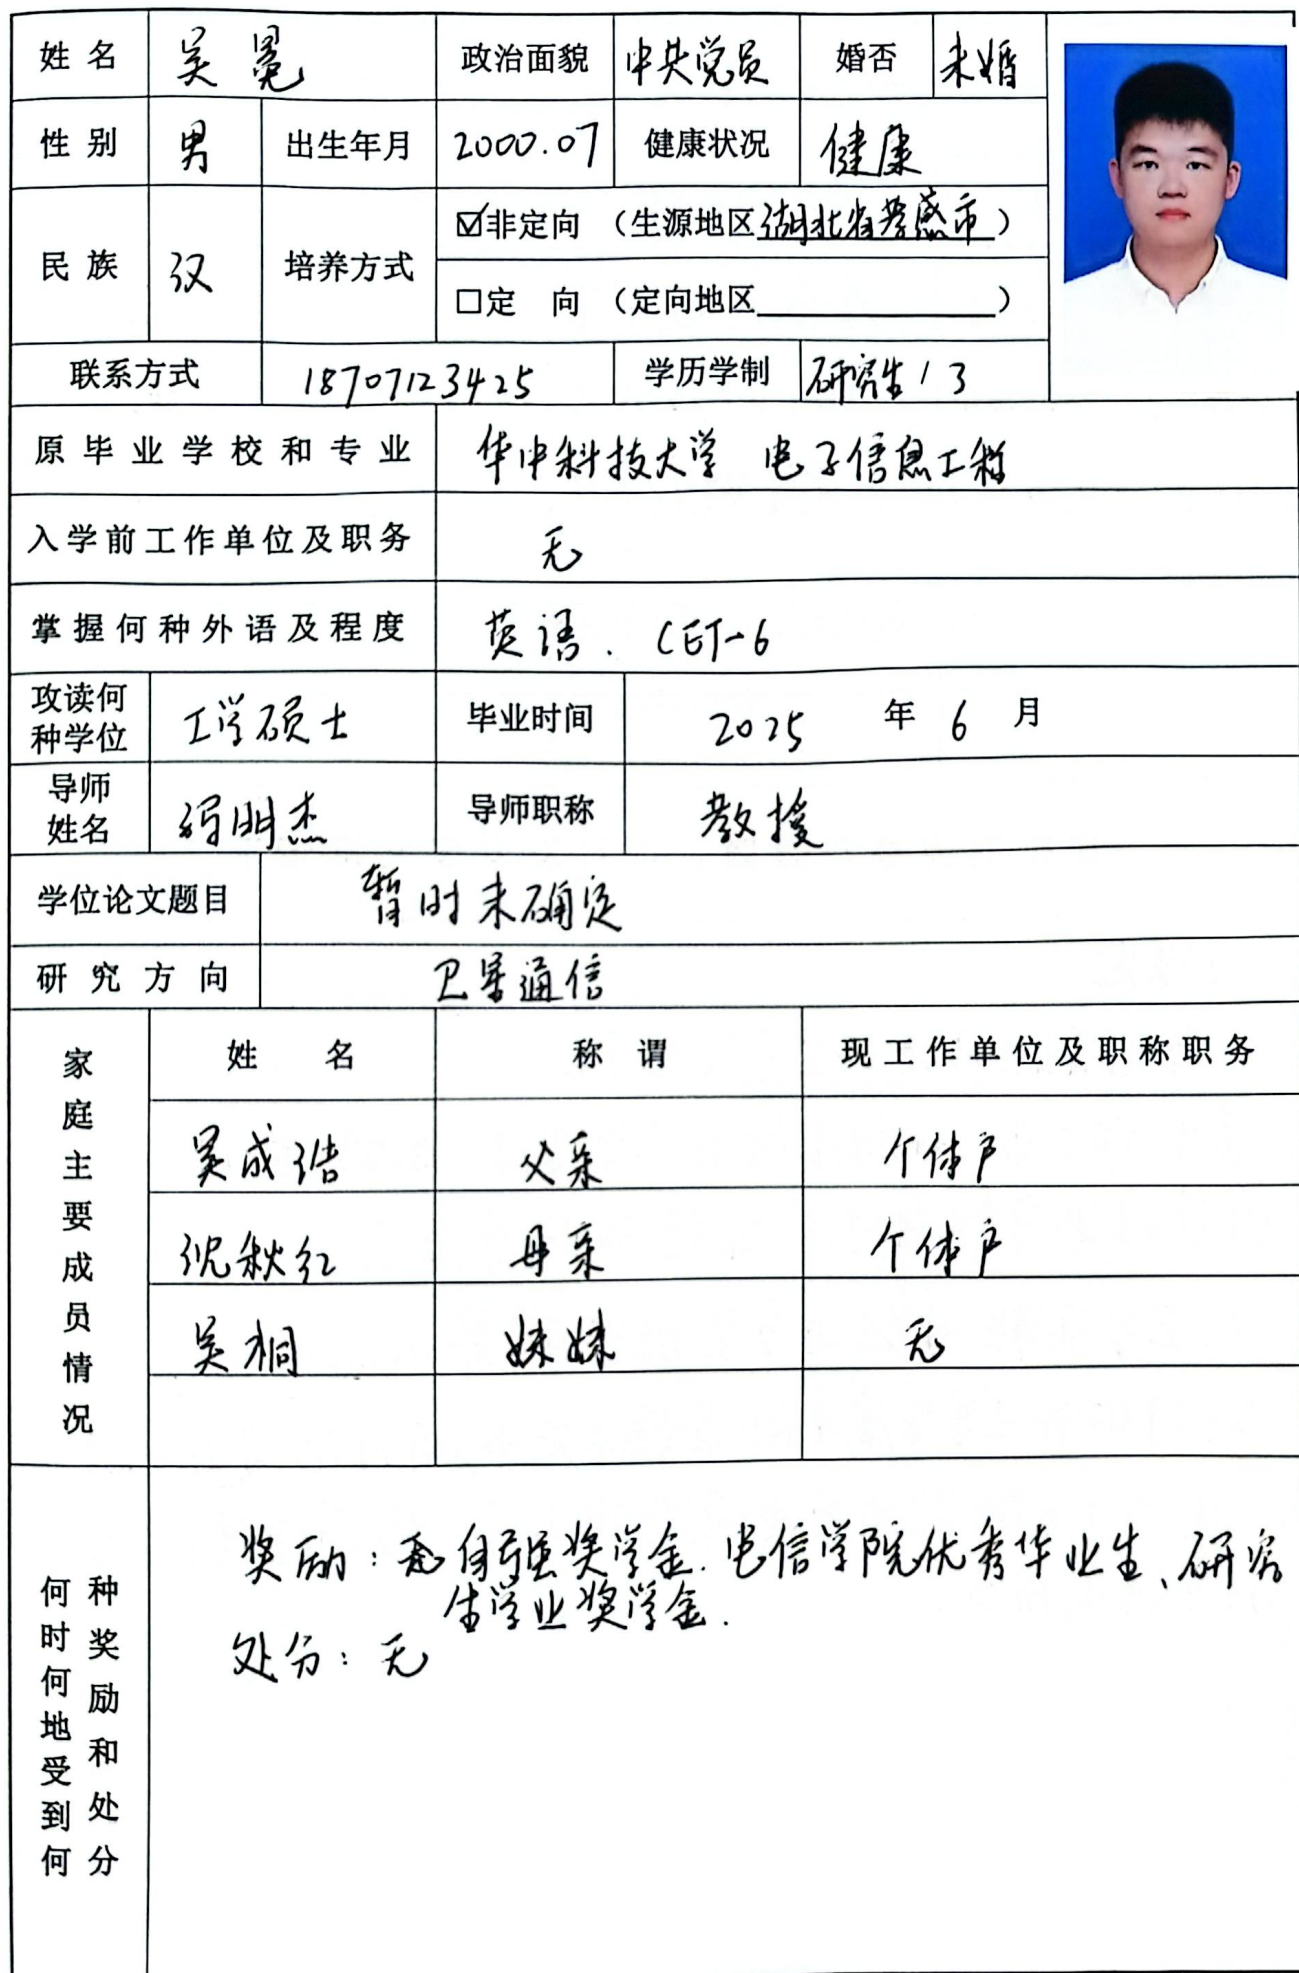 姓 名 吴冕 政治面貌 中共党员 婚否 未婚
性 别 男 出生年月 2000.07 健康状况 健康
民 族 汉 培养方式 ☑非定向 (生源地区湖北省孝感市)
□定 向 (定向地区________)
联系方式 18707123425 学历学制 研究生 / 3
原毕业学校和专业 华中科技大学 电子信息工程
入学前工作单位及职务 无
掌握何种外语及程度 英语. CET-6
攻读何种学位 工学硕士 毕业时间 2025 年 6 月
导师姓名 明杰 导师职称 教授
学位论文题目 暂时未确定
研究方向 卫星通信
家庭主要成员情况
姓 名 称 谓 现工作单位及职称职务
吴成浩 父亲 个体户
沈秋红 母亲 个体户
吴桐 妹妹 无
何时何地受到何种奖励和处分
奖励: 自强奖学金. 电信学院优秀毕业生、研究
生学业奖学金.
处分: 无